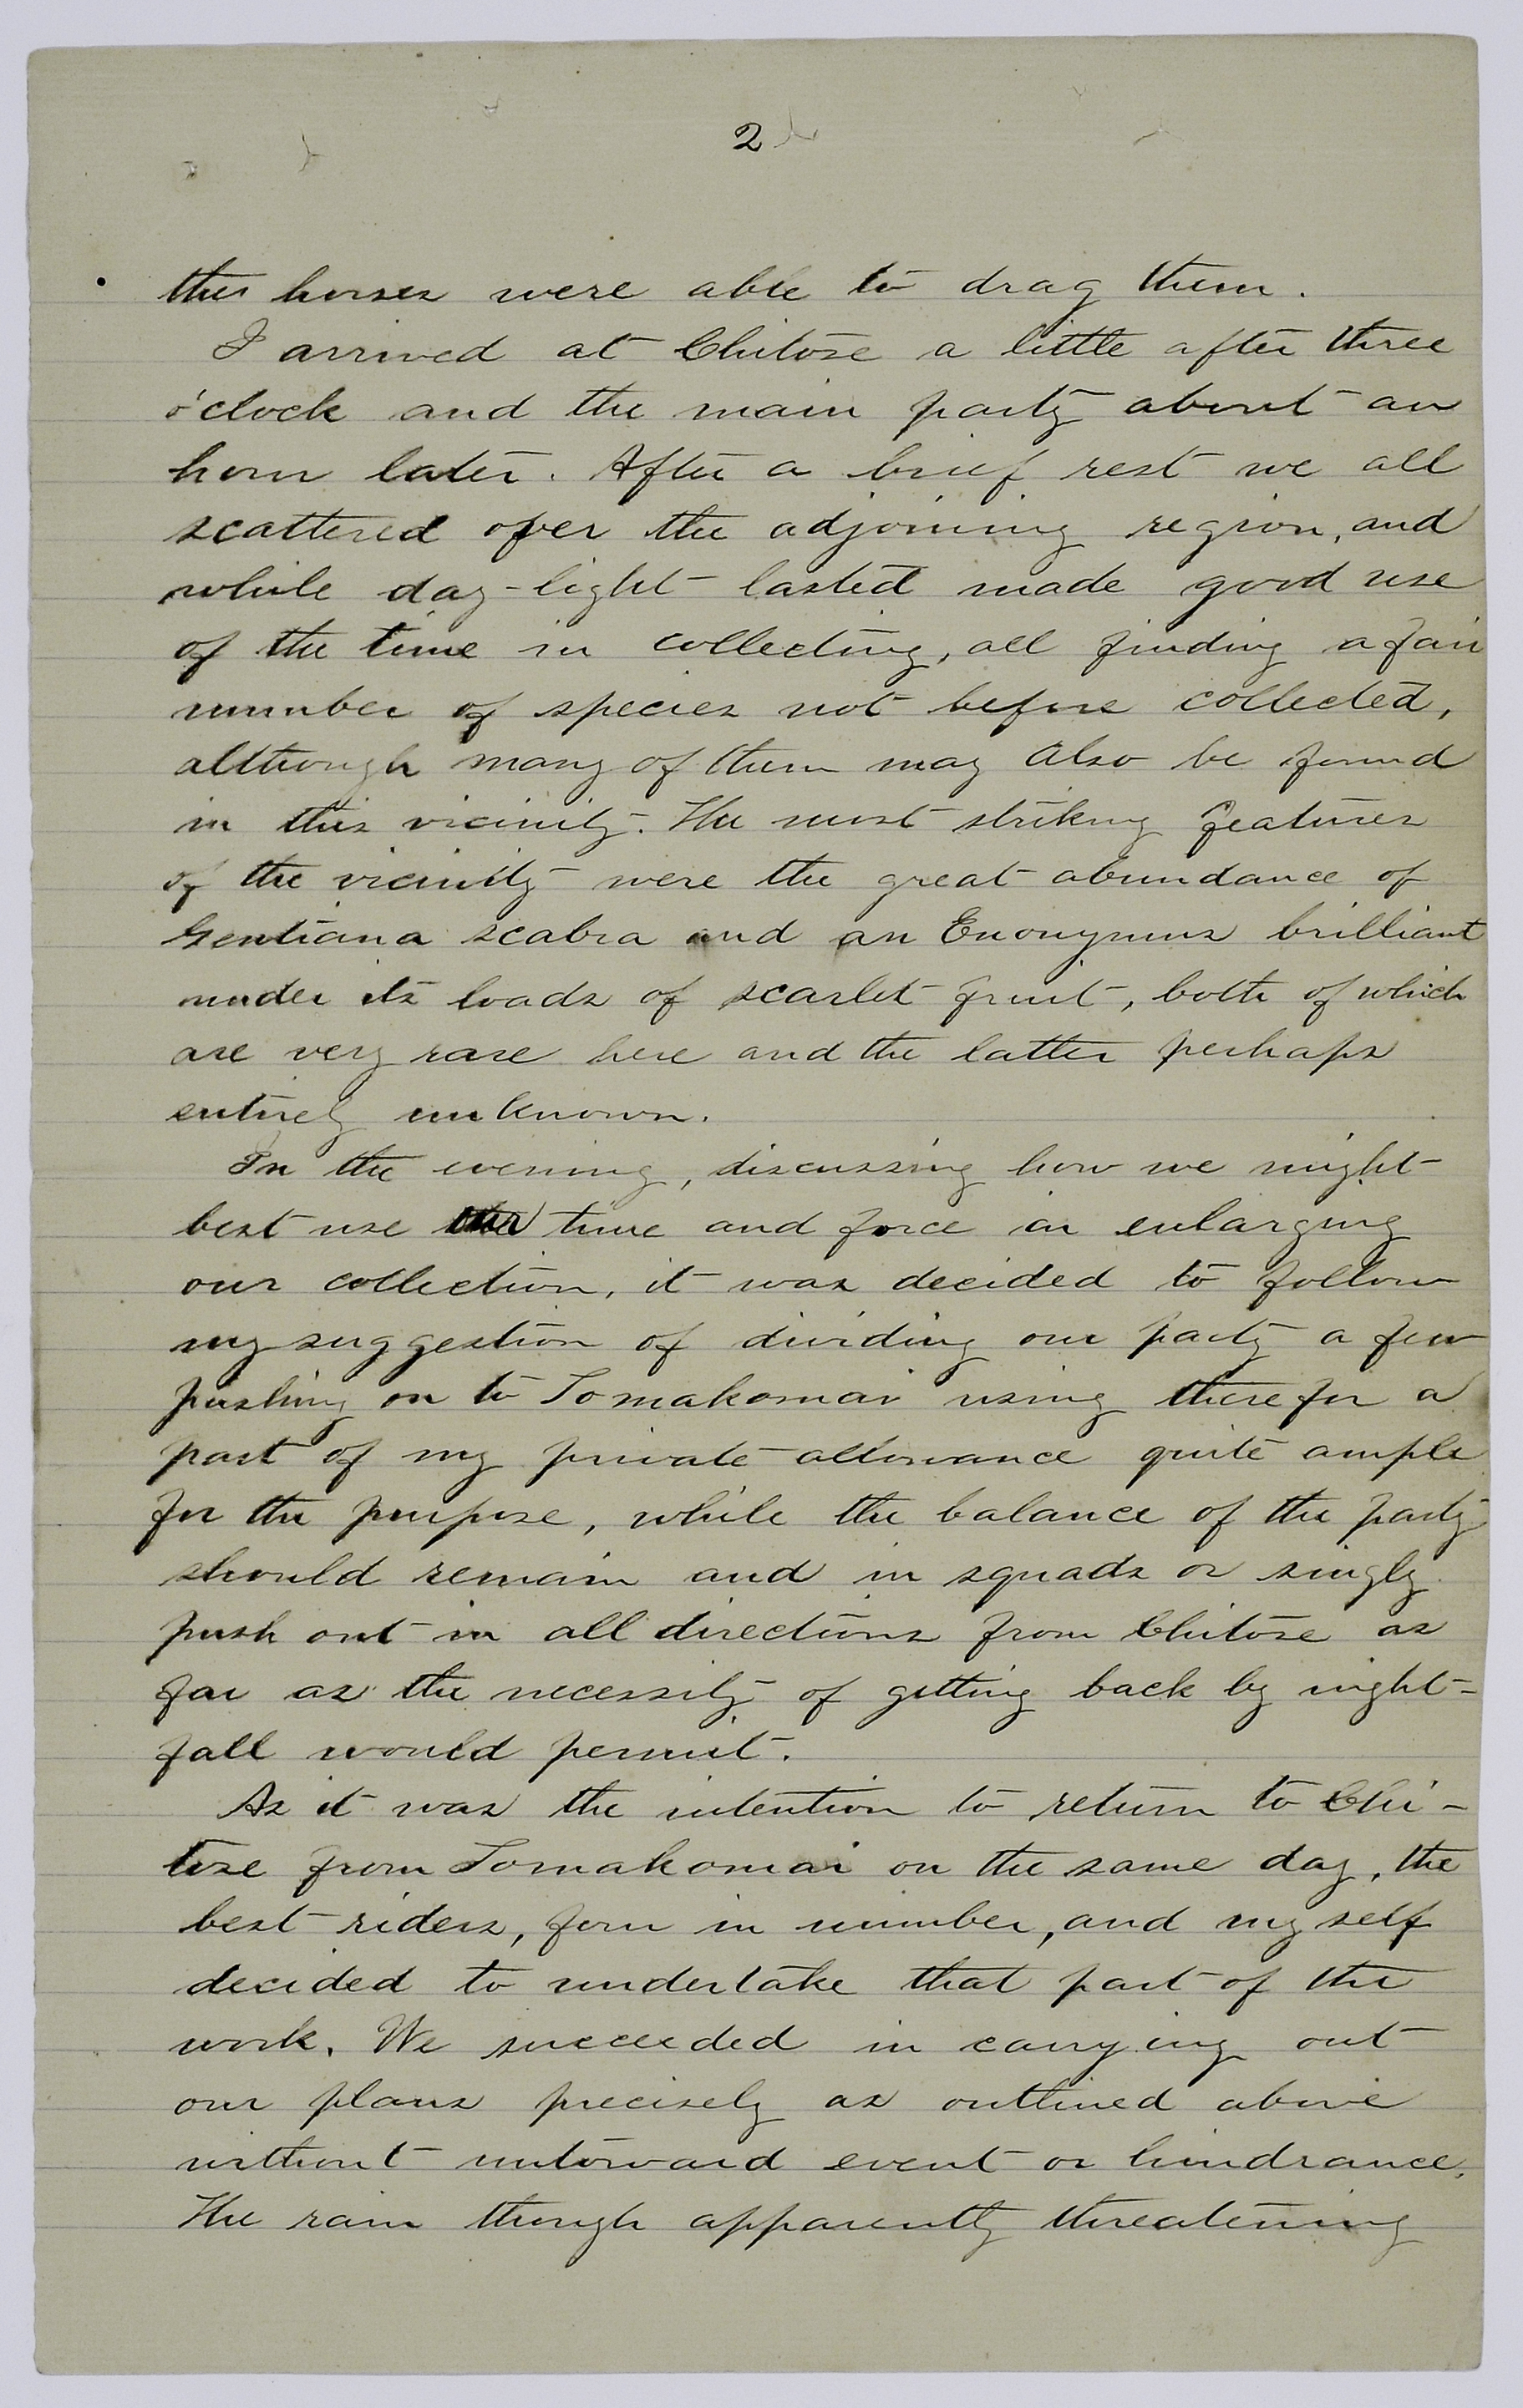 2
the horses were able to drag them.
I arrived at Chitose a little after three
o'clock and the main party about an
hour later. After a brief rest we all
scattered over the adjoining region, and
while day-light lasted made good use
of the time in collecting, all finding a fair
number of species not before collected,
although many of them may also be found
in this vicinity. The most striking features
of the vicinity were the great abundance of
Gentiana scabra and an Euonymus brilliant
under its loads of scarlet fruit, both of which
are very rare here and the latter perhaps
entirely unknown.
In the evening, discussing how we might
best use our time and force in enlarging
our collection, it was decided to follow
my suggestion of dividing our party a few
pushing on to Tomakomai using therefor a
part of my private allowance quite ample
for the purpose, while the balance of the party
should remain and in squads or singly
push out in all directions from Chitose as
far as the necessity of getting back by night-
fall would permit.
As it was the intention to return to Chi-
tose from Tomakomai on the same day, the
best riders, four in number, and myself
decided to undertake that part of the
work. We succeeded in carrying out
our plans precisely as outlined above
without untoward event or hindrance.
The rain though apparently threatening